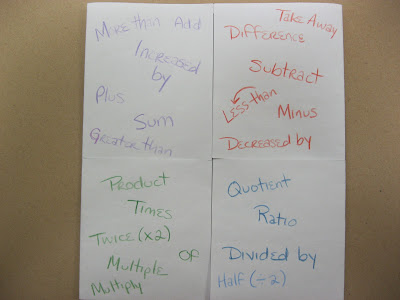 More than Add
Increased
by
Plus
Sum
Greater than
Take Away
Difference
Subtract
Less than
Minus
Decreased by
Product
Times
Twice (x2)
Of
Multiple
Multiply
Quotient
Ratio
Divided by
Half (÷2)